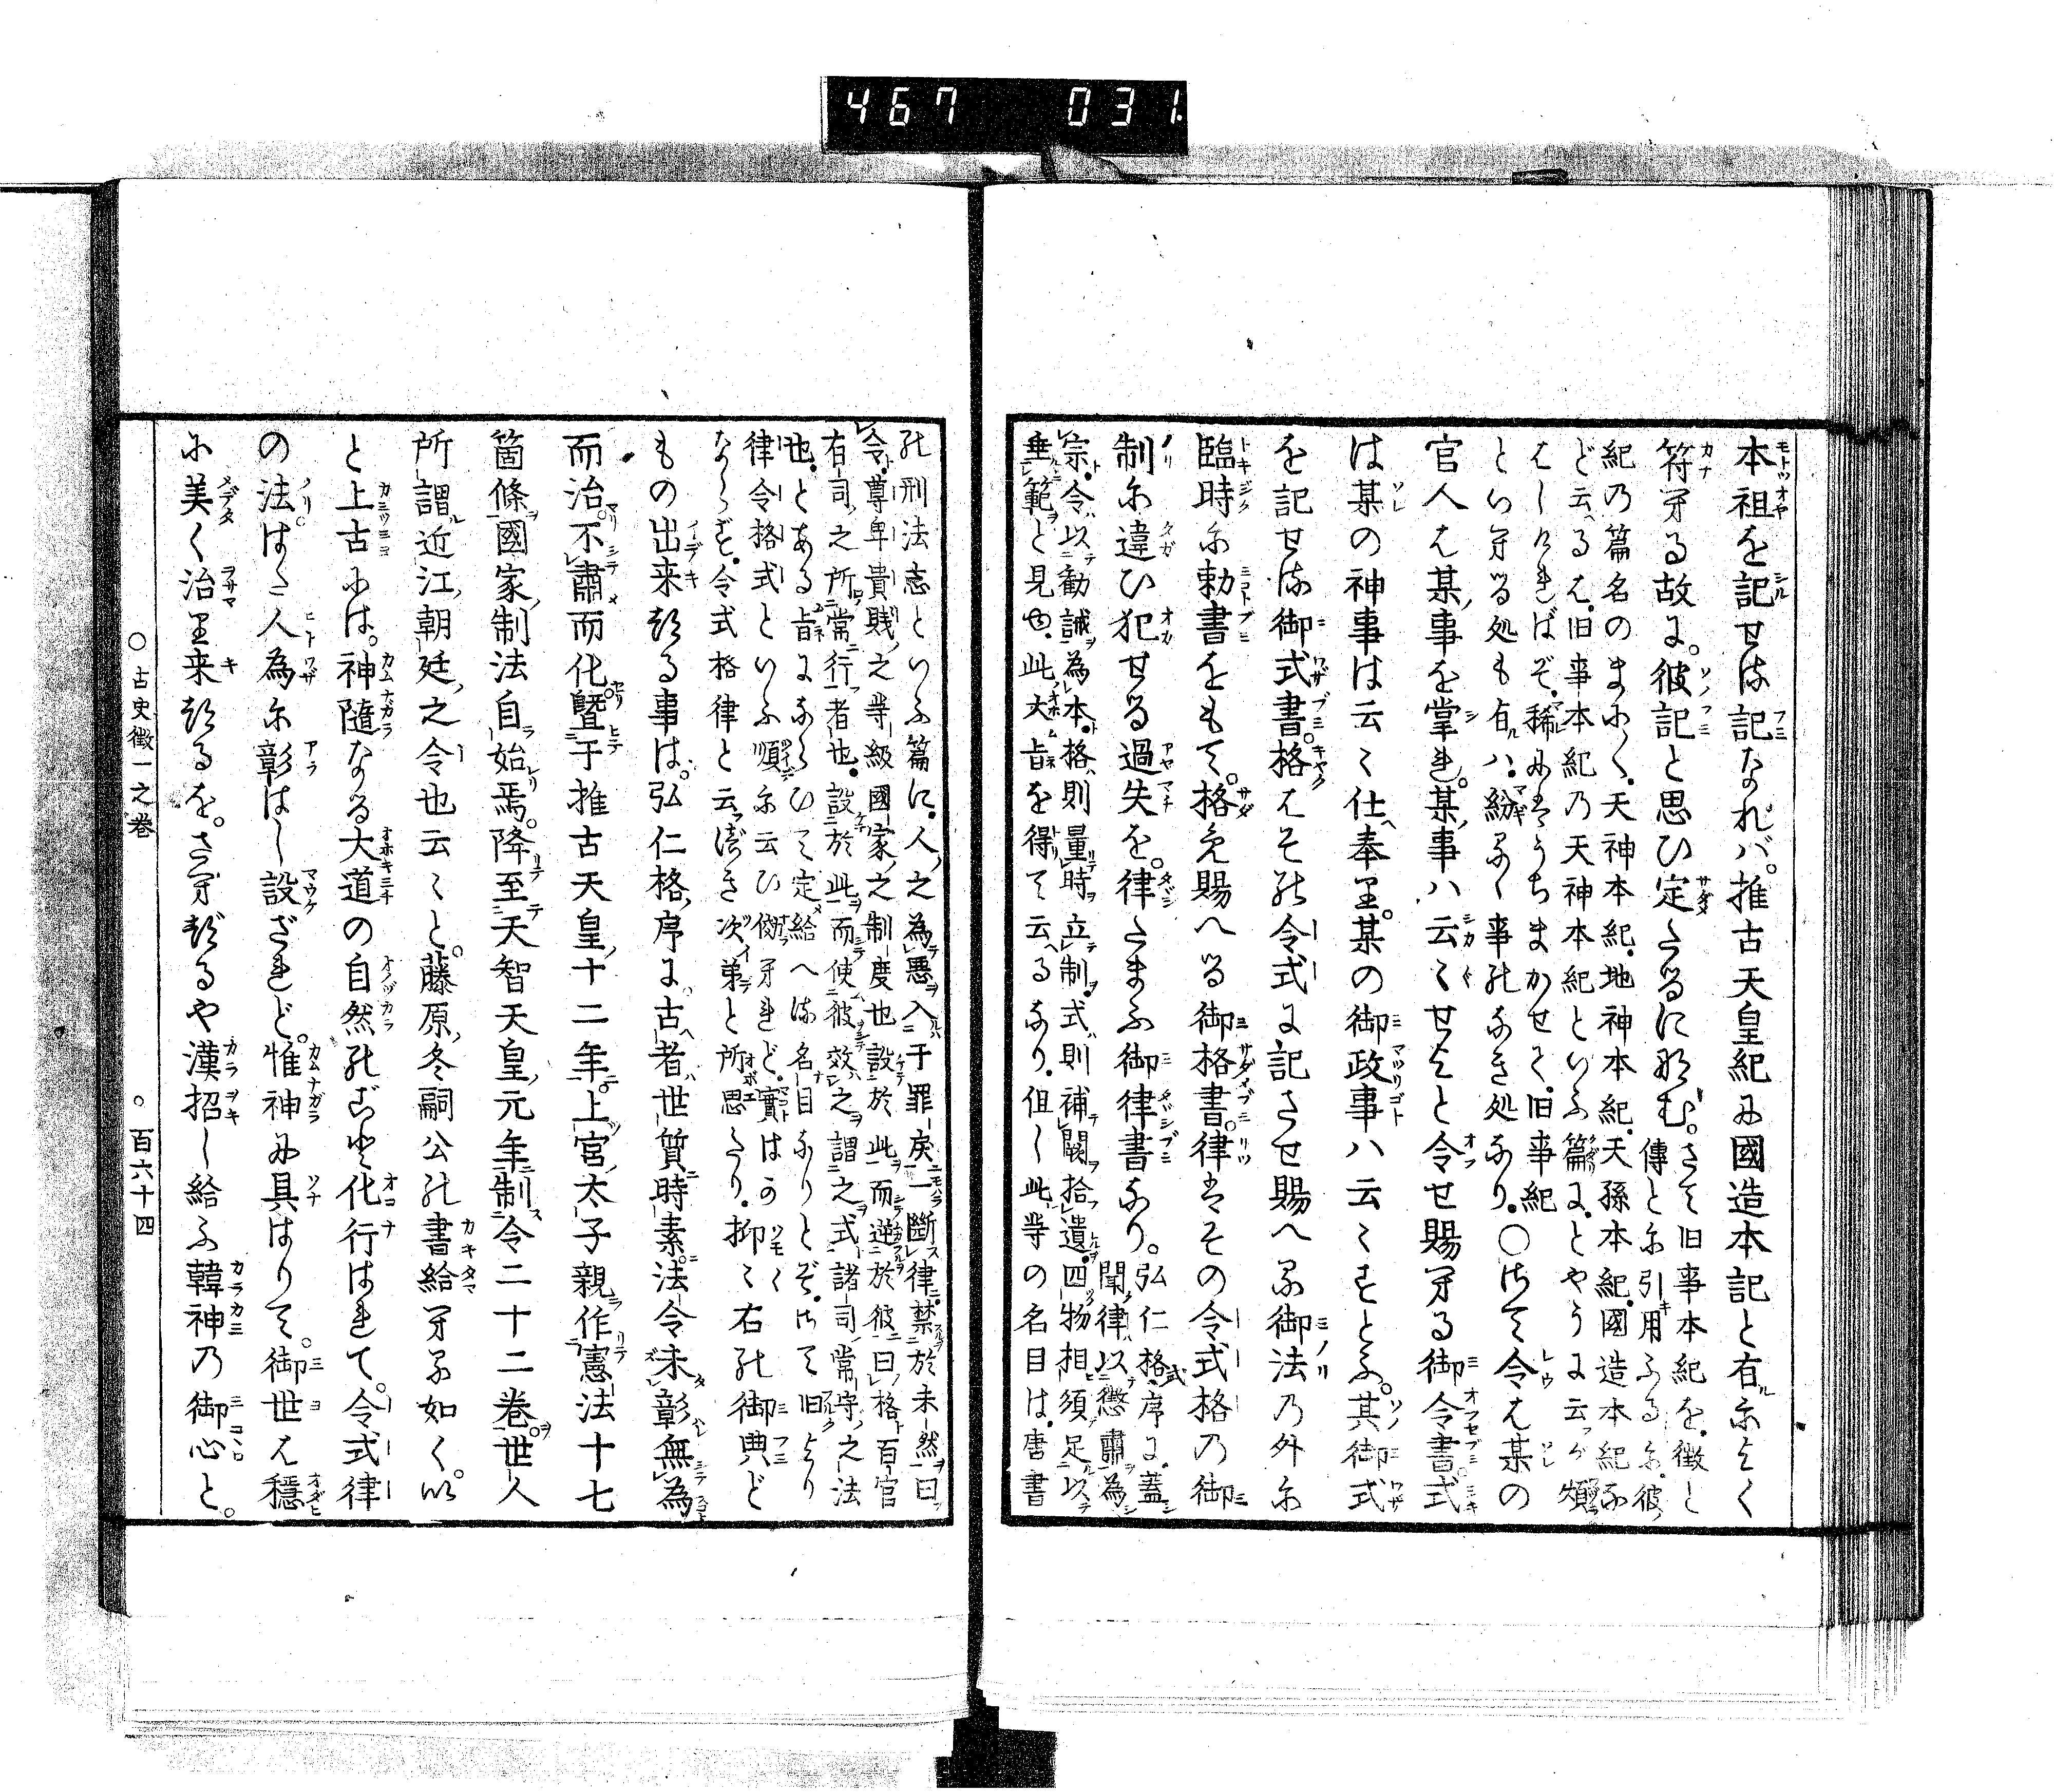 467 031.
本祖を記せる記なれバ。推古天皇紀に國造本記と有によく
符へる故に。彼記と思ひ定たるになむ。
さて旧事本紀を。徴と
傳とに引用ふるに。彼
紀の篇名のまゝく。天神本紀。地神本紀。天孫本紀。國造本紀な
ど云へるは。旧事本紀の天神本紀といふ篇に。とやうに云つゞ煩
はしければぞ。稀にはうちまかせて。旧事紀
といへる処も有ルハ。紛るゝ事のなき処なり。
○さて令は某の
官人は某事を掌れ。某事ハ云々せよと令せ賜へる御令書。式
は某の神事は云々仕奉里。某の御政事ハ云々せとふ。其御式
を記せる御式書。格はその令式に記させ賜へる御法の外に
臨時に勅書をもて。格め賜へる御格書。律はその令式格の御
制に違ひ犯せる過失を。律たまふ御律書なり。
弘仁格式序に。蓋
聞。律以懲肅為
宗。令以勸誡為本。格則量時立制。式則補闕拾遺。四物相須足以
垂範と見ゆ。此大旨を得て云へるなり。但し此等の名目は。唐書
の刑法志といふ篇に。人之為悪入于罪戻一断律。禁於未然曰
令。尊卑貴賤之等級國家之制度也。設於此而逆於彼曰格。百官
有司之所常行者也。設於此而使彼效之謂之式。諸司常守之法
也。とある旨によらひて定給へる名目なりとぞ。さて旧より
律令格式といふ順に云ひ倣へれど。實はかの
ならず。令式格律と云づき次弟と所思たり。抑々右の御典ど
もの出来ぬる事は。弘仁格序に。古者世質時素。法令未彰無為
而治。不肅而化。曁于推古天皇十二年。上宮太子親作憲法十七
箇條。國家制法自始焉。降至天智天皇元年。制令二十二巻。世人
所謂近江朝廷之令也云々と。藤原冬嗣公の書給へる如く。い
と上古には。神隨なる大道の自然のまに化行はれて。令式律
の法はた人為に彰はし設ざれど。惟神に具はりて。御世は穩
に美く治里来ぬるを。さへぬるや漢招し給ふ韓神の御心と。
○古史徴一之巻　○百六十四